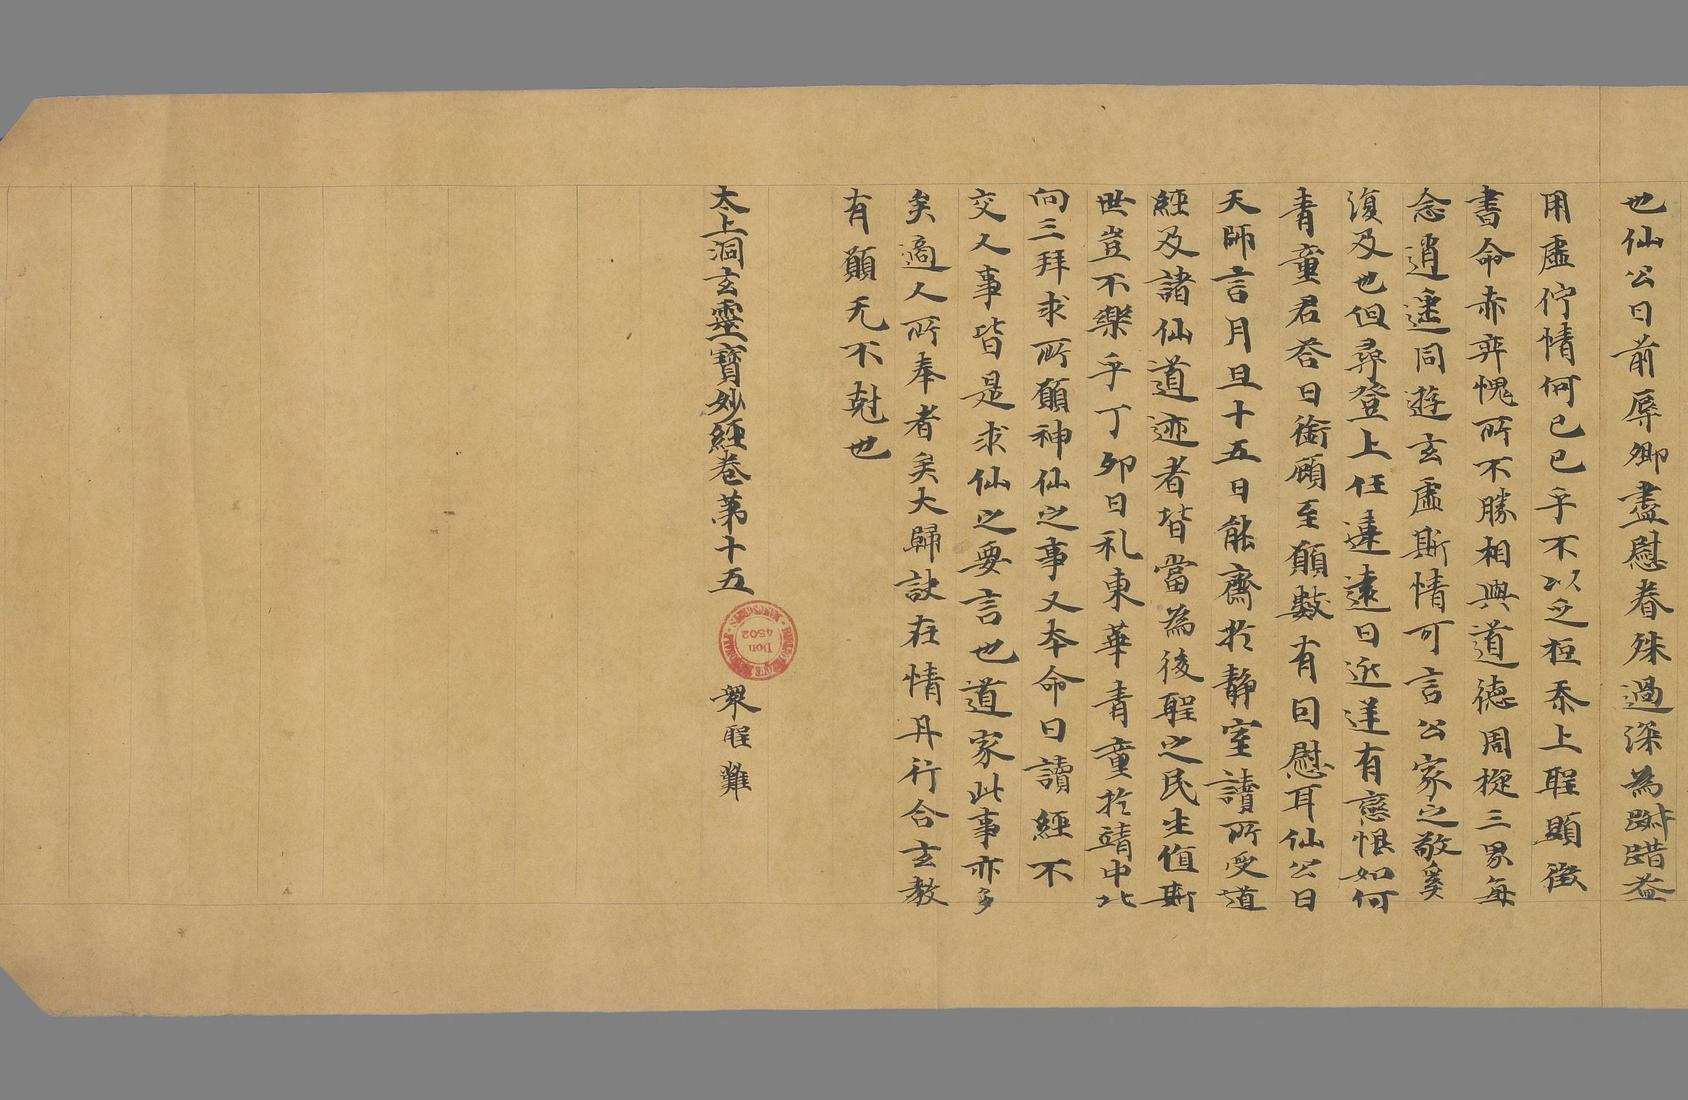 也仙公曰前辱卿盡慰眷殊過深為踧踖益
用虛佇情何已已乎不以乏秬忝上聖顯徵
書命赤弈愧所不勝相與道德周旋三界每
念逍遥同遊玄虛斯情可言公家之敬奚
復及也但尋登上任違遠日近遅有戀悢如何
青童君荅曰銜顧至願數有回慰耳仙公曰
天師言月旦十五日能齋扵靜室讀所受道
經及諸仙道迹者皆當為後聖之民生值斯
世豈不樂乎丁卯日礼東華青童扵靖中北
向三拜求所願神仙之事又本命日讀經不
交人事皆是求仙之要言也道家此事亦多
矣適人所奉者矣大歸訣在情丹行合玄教
有願无不尅也
太上洞玄靈寶妙經卷第十五
衆聖難
Don
4502